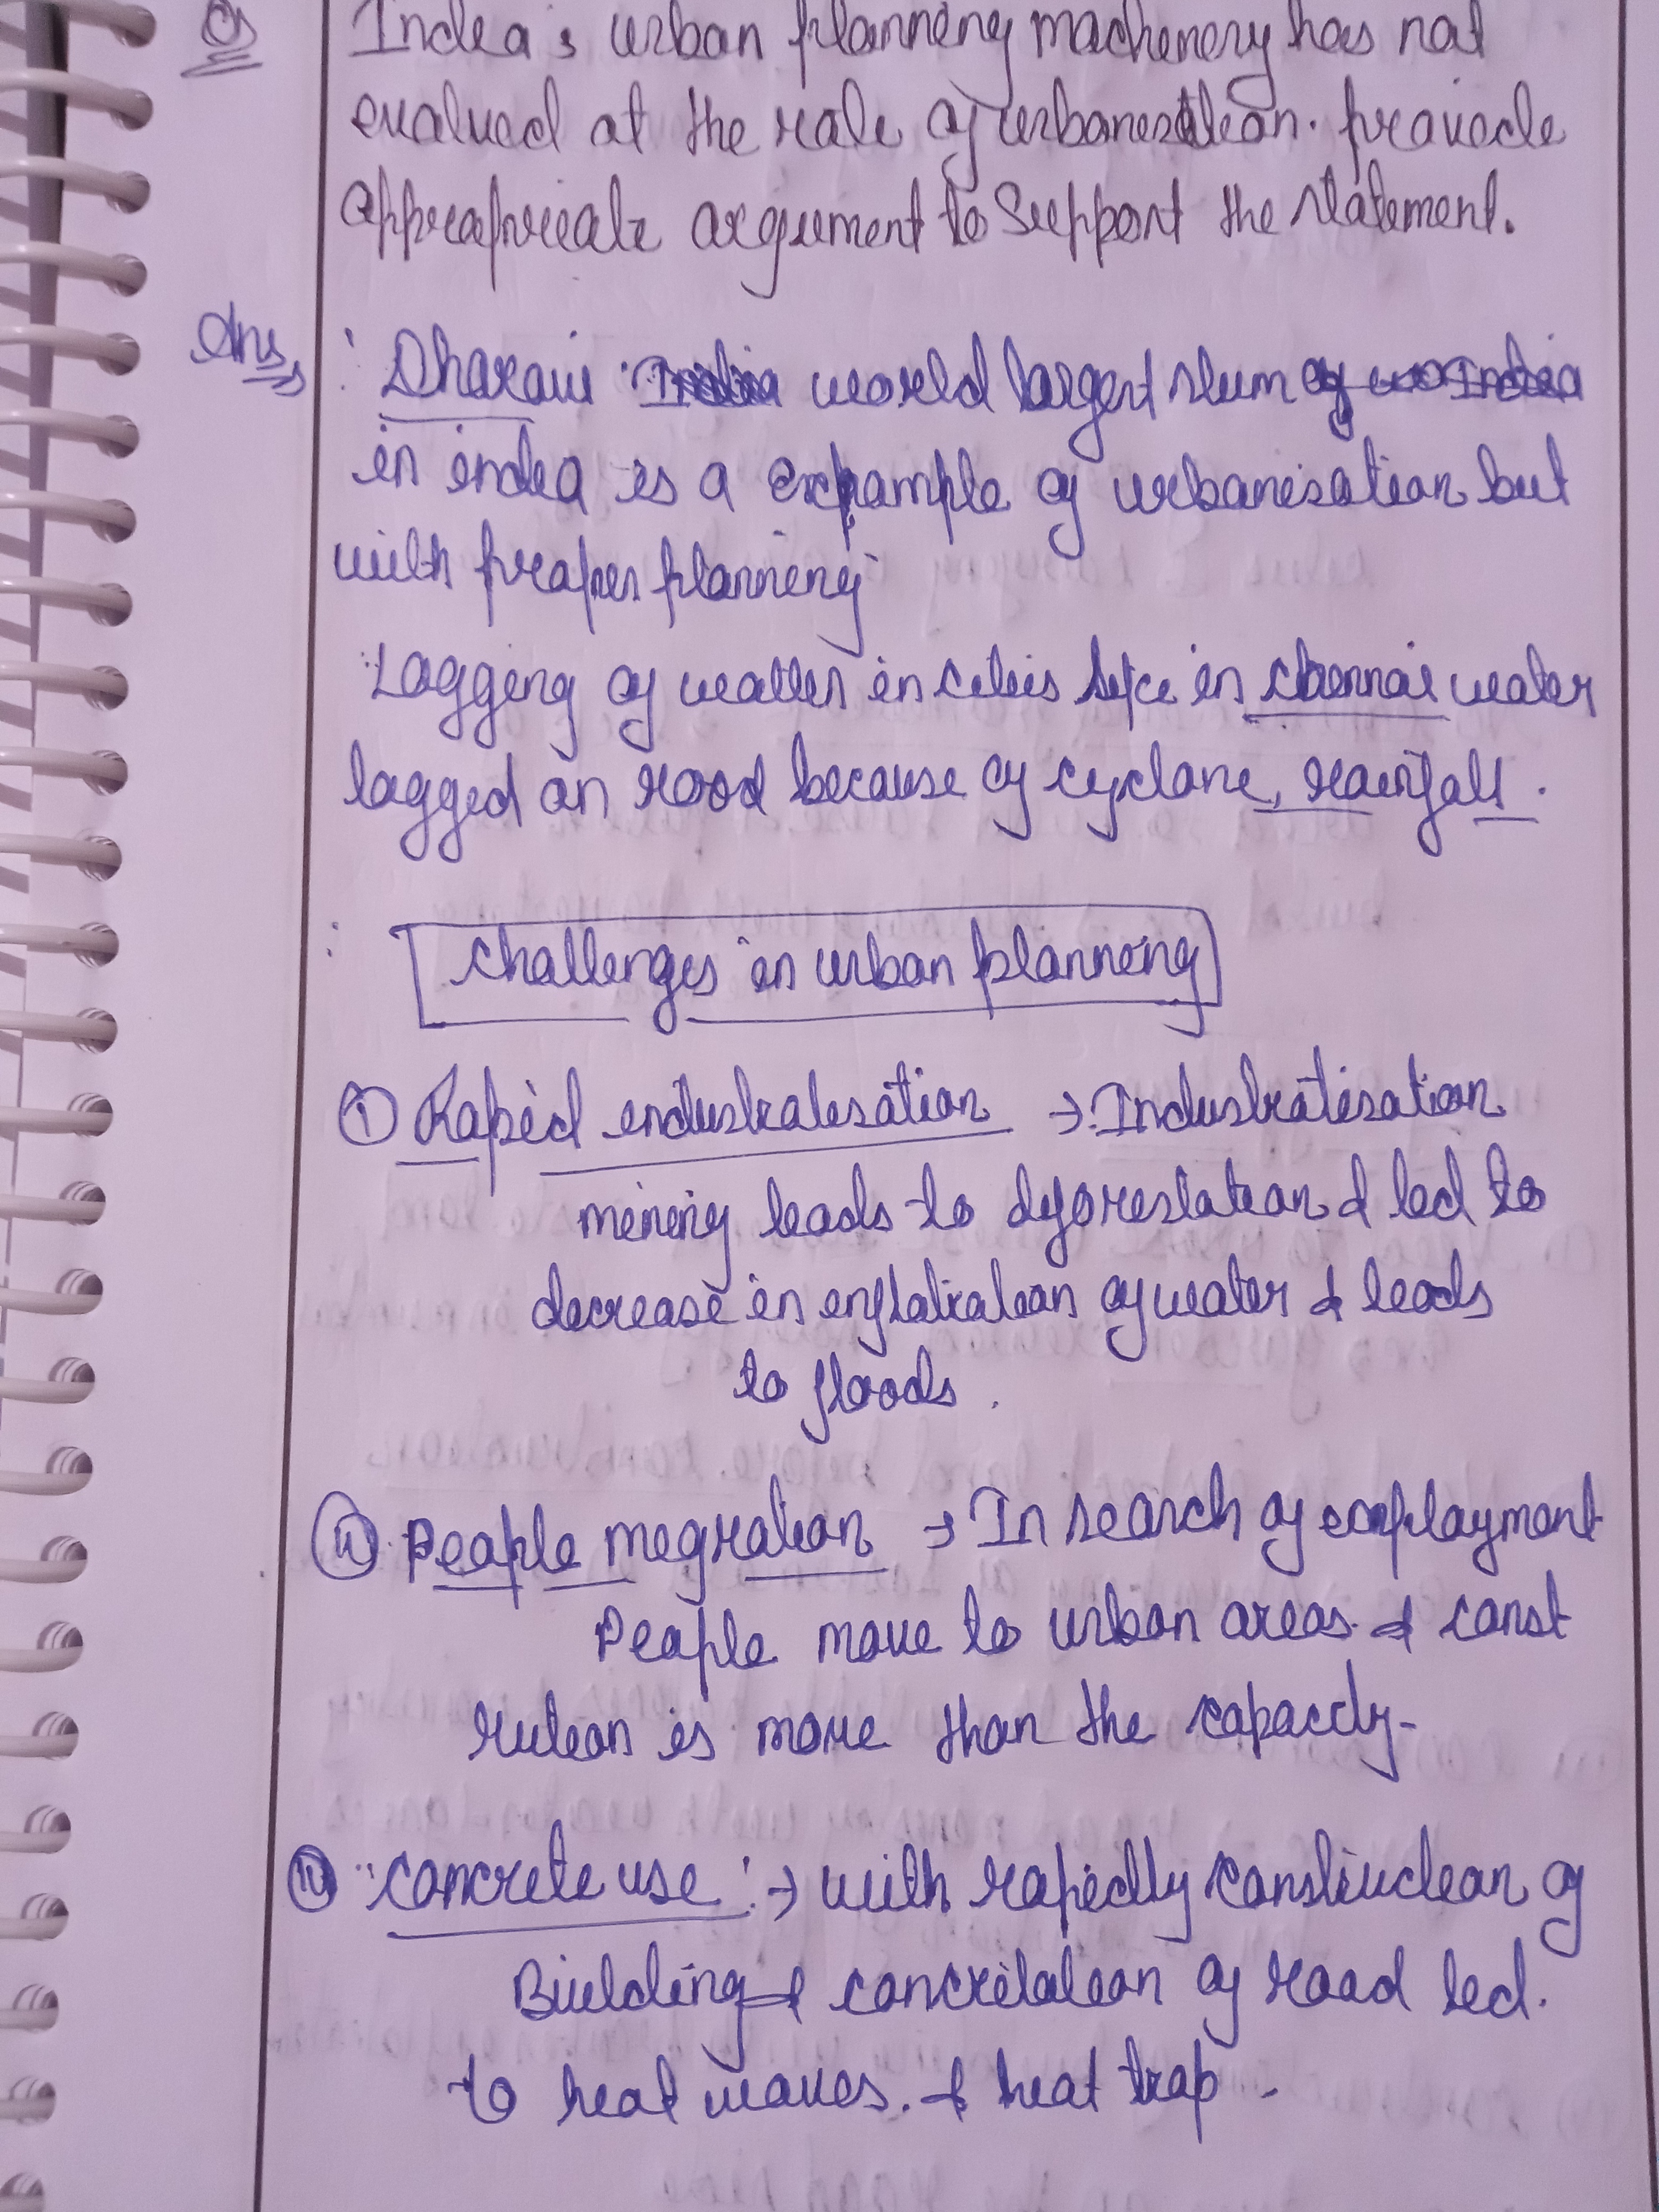 Q
India's urban planning machinery has not
evalued at the rate of urbanisation. provide
appropriate argument to Support the statement.
Ans
: Dharavi India world largest slum of wo India
in india is a example of urbanisation but
with proper planning
Logging of watter in cities like in chennai water
logged on road because of cyclone, rainfall.
: challenges in urban planning
① Rapid industralisation → Industratisation
mining leads to deforestation & led to
decrease in infiltration of water & leads
to floods.
ⓘⓘ People migration → In search of employment
People move to urban areas. & const
rution is more than the capacity-
ⓘⓘⓘ concrete use :→ with rapidly construction of
Building & concretation of road led.
to heat waves. & heat trap -